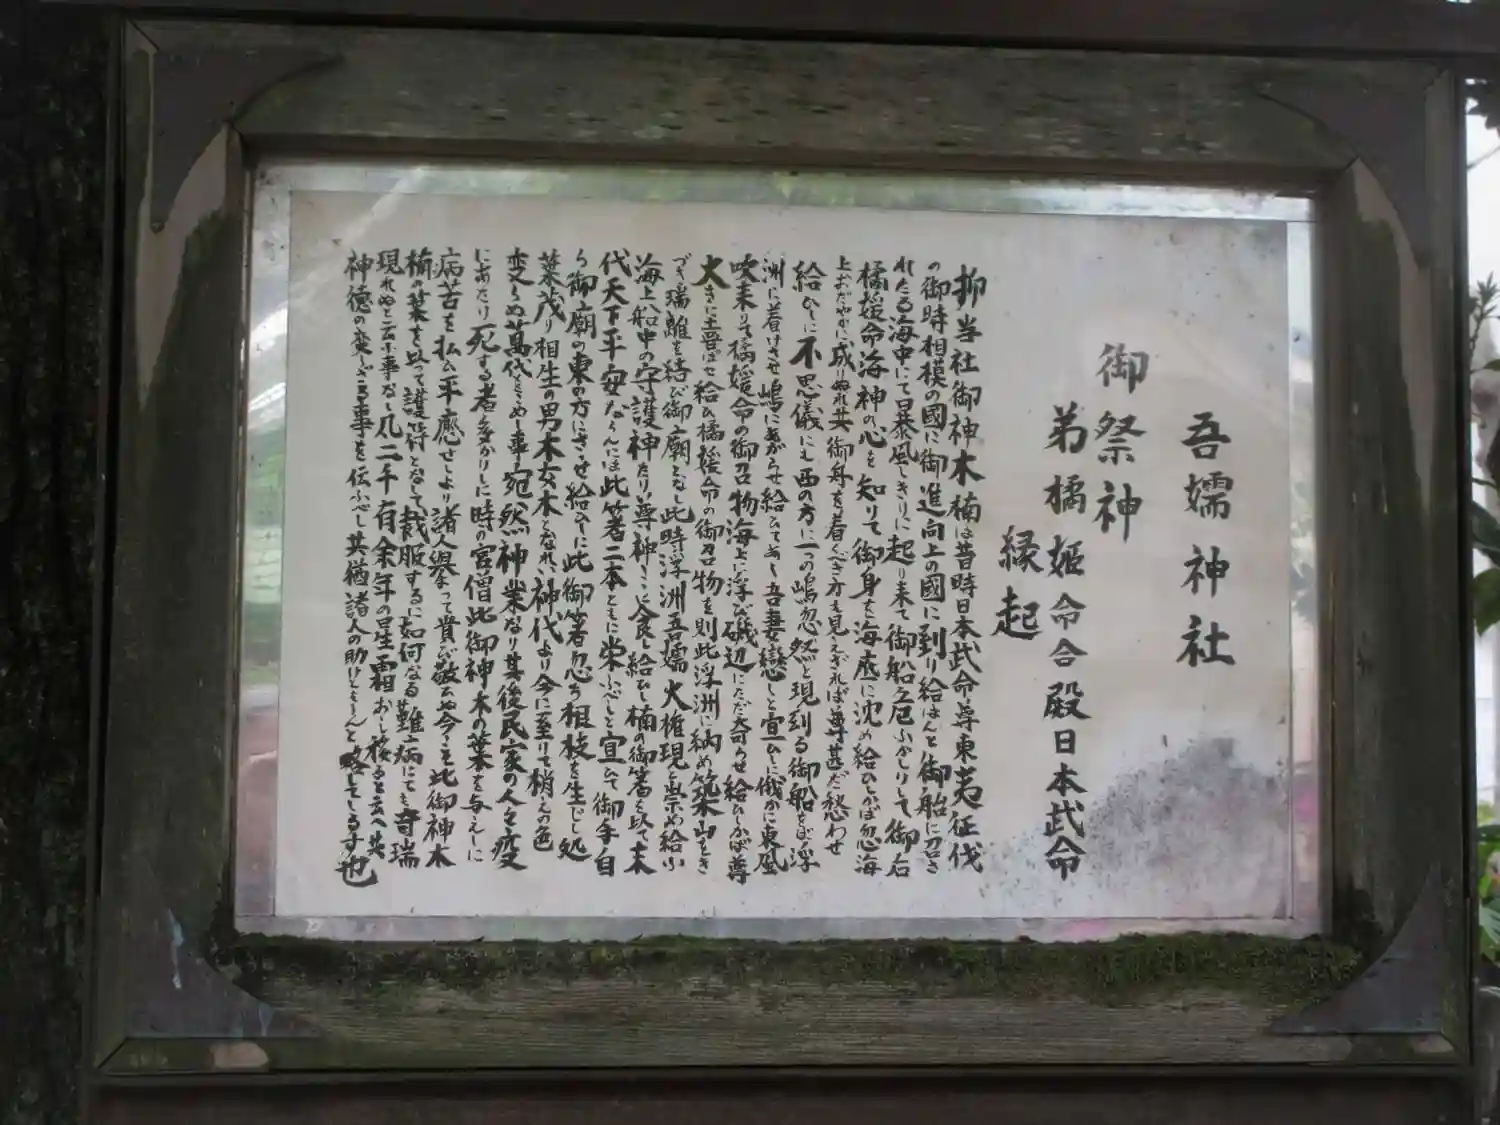 吾嬬神社
御祭神
弟橘姫命合殿日本武命
縁起
抑当社御神木楠は昔時日本武命尊東夷征伐
の御時相模の國に御進向上の國に到り給はんと御船に召さ
れたる海中にて暴風しきりに起り来て御船危ふかりして御右
橘媛命海神の心を知りて御身を海底に沈め給ひしかば忽海
上おだやかに成ぬれ共御舟を着くべき方も見えざれば尊甚だ愁わせ
給ひしに不思儀にも西の方に一つの嶋忽然と現到る御船をば浮
洲に着けさせ嶋にあがらせ給ひてあゝ吾妻戀しと宣ひしに俄かに東風
吹来りて橘媛命の御召物海上に浮び磯辺にただ寄らせ給ひしかば尊
大きに喜ばせ給ひ橘媛命の御召物を則此浮洲に納め築山をき
づき瑞離を結び御廟となし此時浮洲吾嬬大権現と崇め給ふ
海上船中の守護神たり尊神こゝに食し給ひし楠の御箸を以て末
代天下平安ならんには此箸二本ともに栄ふべしと宣ひて御手自
ら御廟の東の方にささせ給ひしに此御箸忽ち根枝を生じし処
葉茂り相生の男木女木となれり神代より今に至りて梢への色
変らぬ萬代をこめし事宛然神業なり其後民家の人々疫
にあたり死する者多かりしに時の宮僧此御神木の葉を与えしに
病苦を払ひ平癒せしより諸人挙って貴び敬ひぬ今こそ此御神木
楠の葉を以って護符となして裁服するに如何なる難病にても奇瑞
現れぬと云ふ事なし凡二千有余年の星霜おし移ると云へ共
神徳の変らざる事を伝ふべし其猶諸人の助けともならんと略してしるす也